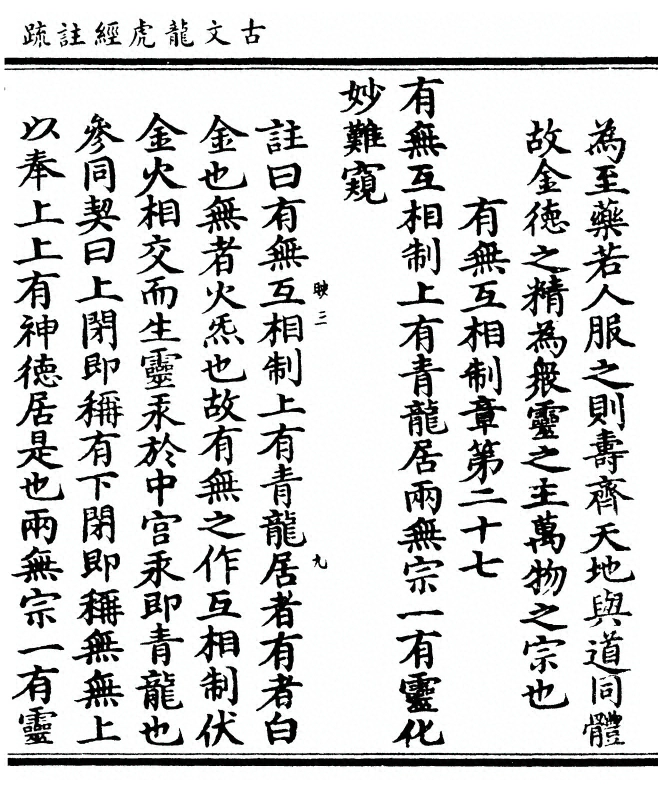 古文龍虎經註疏
為至藥若人服之則壽齊天地與道同體
故金德之精為眾靈之主萬物之宗也
有無互相制章第二十七
有無互相制上有青龍居兩無宗一有靈化
妙難窺
映三
九
註曰有無互相制上有青龍居者有者白
金也無者火炁也故有無之作互相制伏
金火相交而生靈汞於中宮汞即青龍也
參同契曰上閉即稱有下閉即稱無無上
以奉上上有神德居是也兩無宗一有靈